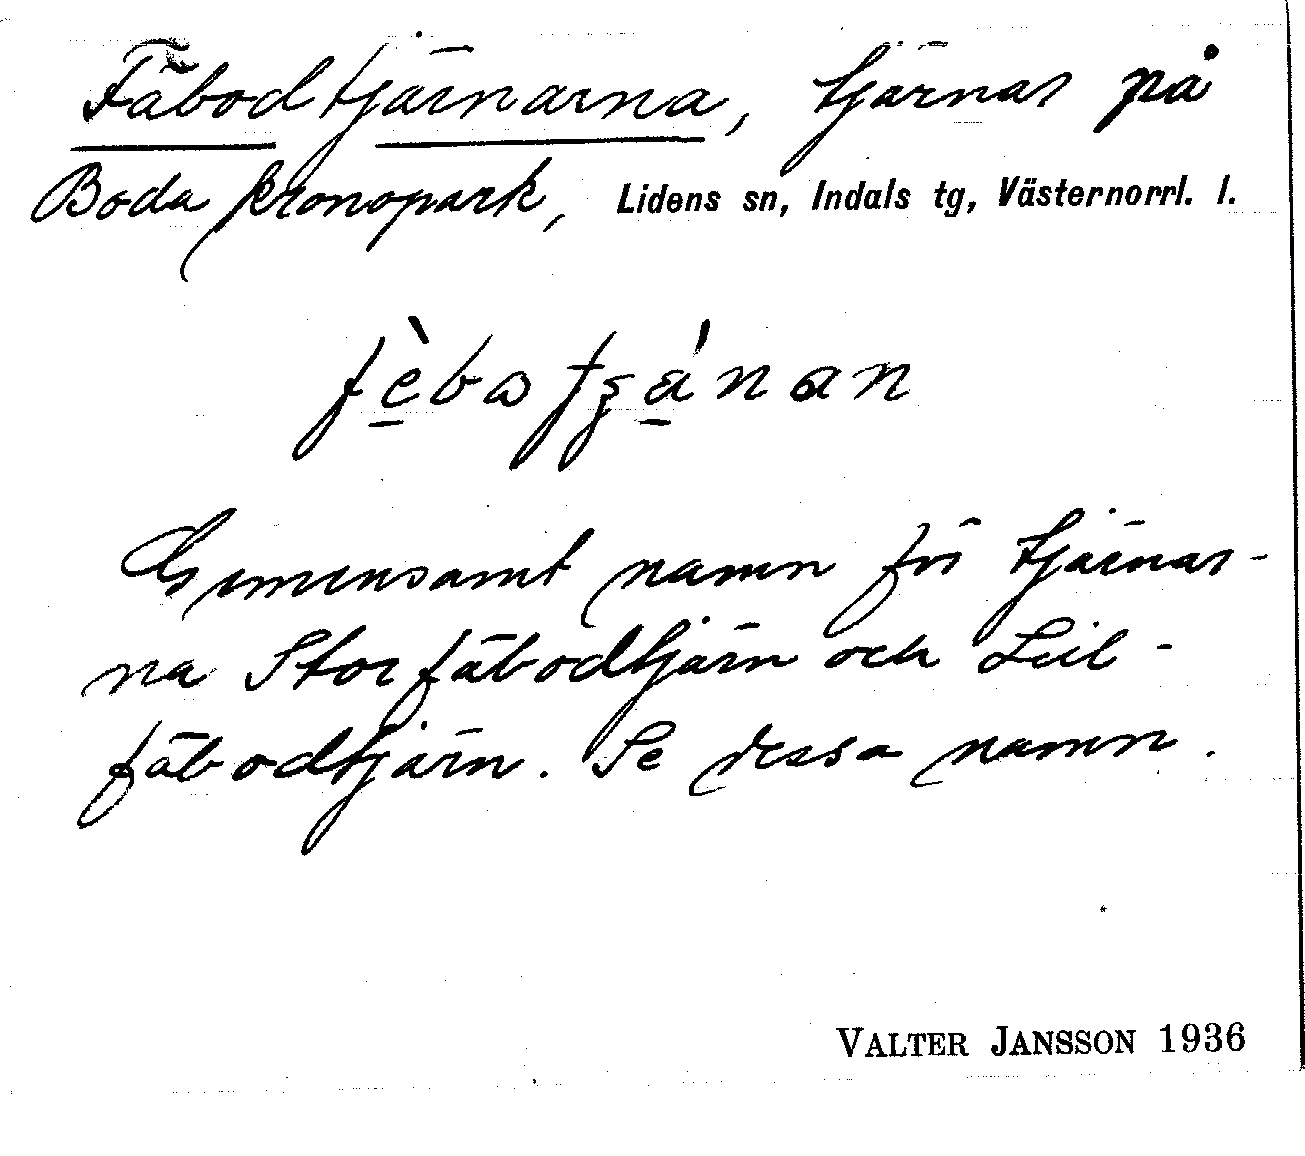 Fäbodtjärnarna, tjärnar på
Boda kronopark, Lidens sn, Indals tg, Västernorrl. l.
fe̠̋batʒa̠̍nan
Gemensamt namn för tjärnar-
na Storfäbodtjärn och Lill-
fäbodtjärn. Se dessa namn.
VALTER JANSSON 1936